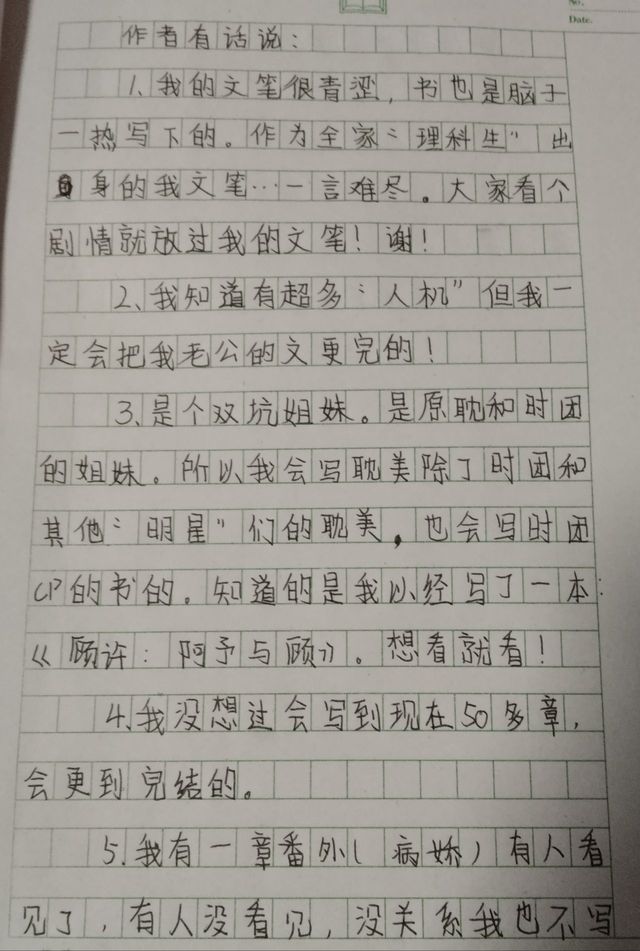 No.
Date.
作者有话说：
1、我的文笔很青涩，书也是脑子
一热写下的。作为全家“理科生”出
身的我文笔…一言难尽。大家看个
剧情就放过我的文笔！谢！
2、我知道有超多“人机”但我一
定会把我老公的文更完的！
3、是个双坑姐妹。是原耽和时团
的姐妹。所以我会写耽美除了时团和
其他“明星”们的耽美，也会写时团
CP的书的。知道的是我以经写了一本：
《顾许：阿予与顾》。想看就看！
4、我没想过会写到现在50多章，
会更到完结的。
5、我有一章番外（病娇）有人看
见了，有人没看见，没关系我也不写